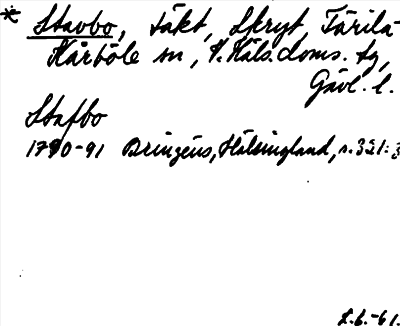 * Stavbo, täkt, Skryt, Färila-
Kårböle sn, V. Häls. doms. tg,
Gävl. l.
Stafbo
1790-91 Bringéus, Hälsingland, s. 321:3
L.b.-61.